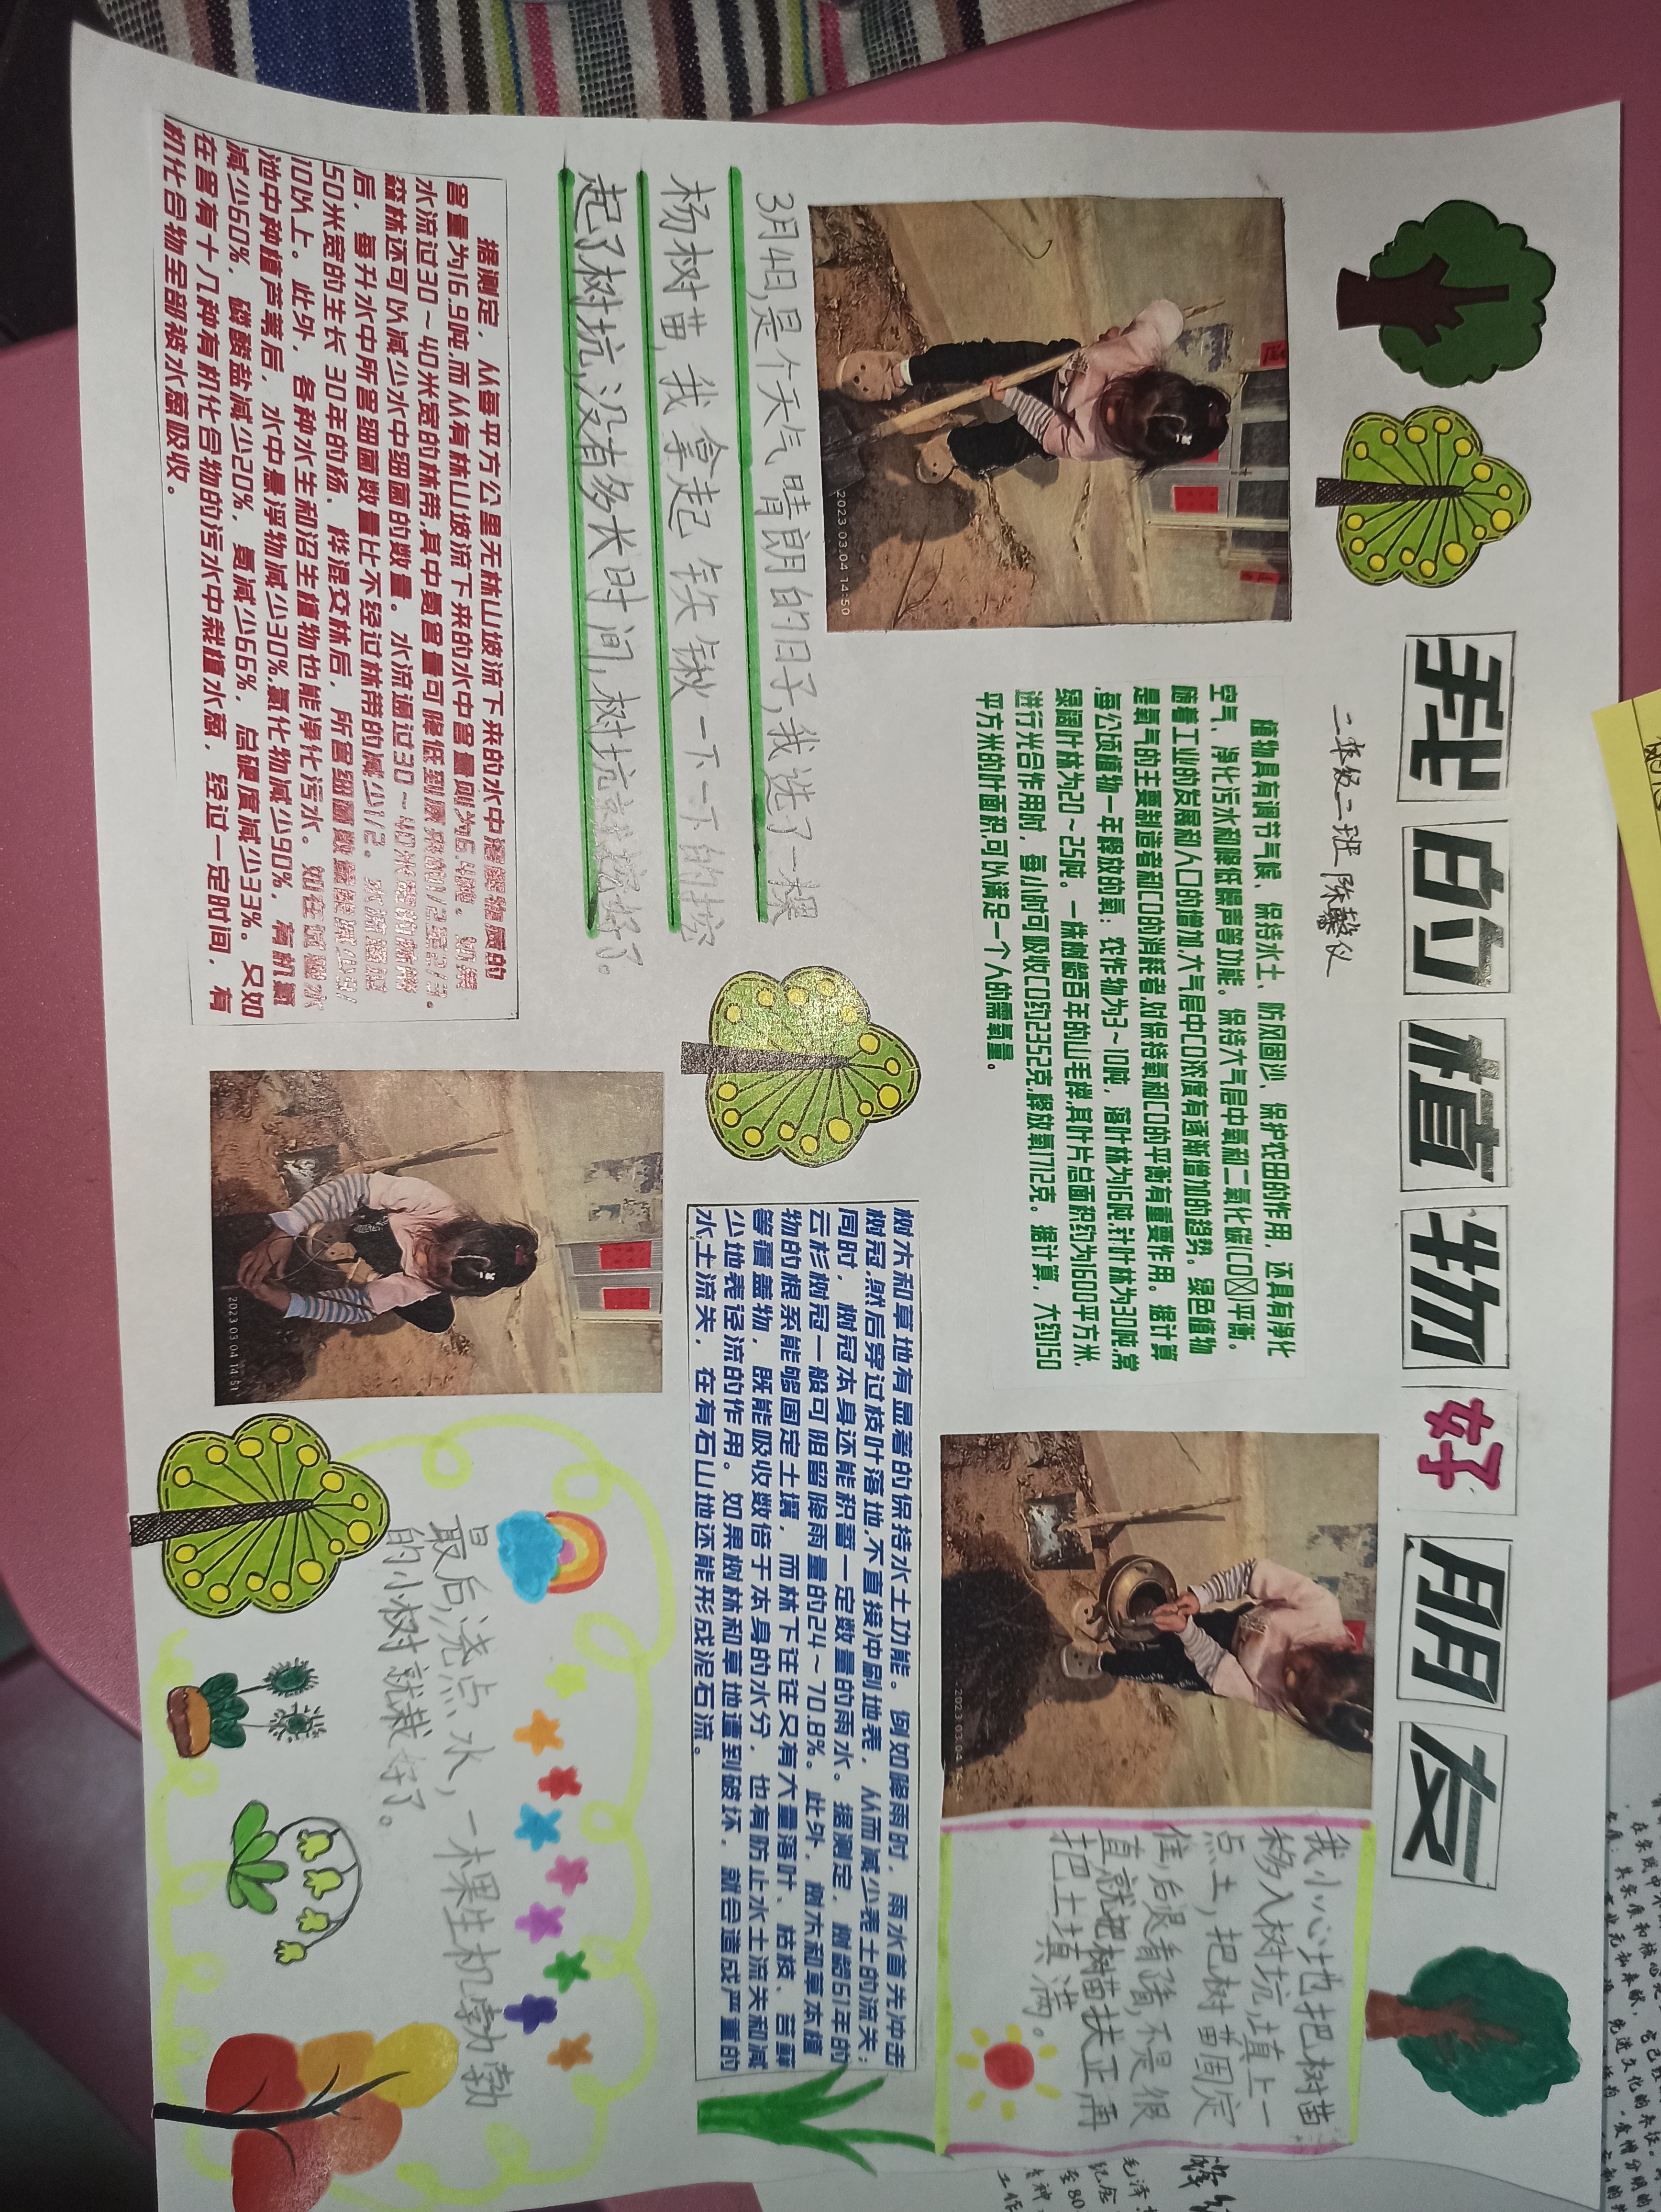 我的植物好朋友
二年级二班 陈馨仪
2023.03.04 14:50
植物具有调节气候、保持水土、防风固沙、保护农田的作用，还具有净化
空气、净化污水和降低噪声等功能。保持大气层中氧和二氧化碳(CO☒)平衡。
随着工业的发展和人口的增加,大气层中CO浓度有逐渐增加的趋势。绿色植物
是氧气的主要制造者和CO的消耗者,对保持氧和CO的平衡有重要作用。据计算
,每公顷植物一年释放的氧：农作物为3～10吨，落叶林为16吨,针叶林为30吨,常
绿阔叶林为20～25吨。一株树龄百年的山毛榉,其叶片总面积约为1600平方米,
进行光合作用时，每小时可吸收CO约2352克,释放氧1712克。据计算，大约150
平方米的叶面积,可以满足一个人的需氧量。
2023.03.04
我小心地把树苗
移入树坑,填上一
点土，把树苗固定
住,后退看看,不是很
直就把树苗扶正再
把土填满。
3月4日,是个天气晴朗的日子,我选了一棵
杨树苗,我拿起铁锹一下一下的挖
起了树坑,没有多长时间,树坑就挖好了。
树木和草地有显著的保持水土功能。例如降雨时，雨水首先冲击
树冠,然后穿过枝叶落地,不直接冲刷地表，从而减少表土的流失；
同时，树冠本身还能积蓄一定数量的雨水。据测定，树龄61年的
云杉树冠一般可阻留降雨量的24～70.8%。此外，树木和草本植
物的根系能够固定土壤，而林下往往又有大量落叶、枯枝、苔藓
等覆盖物，既能吸收数倍于本身的水分，也有防止水土流失和减
少地表径流的作用。如果树林和草地遭到破坏，就会造成严重的
水土流失，在有石山地还能形成泥石流。
据测定，从每平方公里无林山坡流下来的水中溶解物质的
含量为16.9吨,而从有林山坡流下来的水中含量则为6.4吨。如果
水流过30～40米宽的林带,其中氨含量可降低到原来的1/2至2/3。
森林还可以减少水中细菌的数量。水流通过30～40米宽的林带
后，每升水中所含细菌数量比不经过林带的减少1/2。水流通过
50米宽的生长30年的杨、桦混交林后，所含细菌数量能减少9/
10以上。此外，各种水生和沼生植物也能净化污水。如在试验水
池中种植芦苇后，水中悬浮物减少30%,氯化物减少90%，有机氮
减少60%，磷酸盐减少20%，氨减少66%，总硬度减少33%。又如
在含有十几种有机化合物的污水中栽植水葱，经过一定时间，有
机化合物全部被水葱吸收。
2023.03.04 14:51
最后,浇点水,一棵生机勃勃
的小树就栽好了。